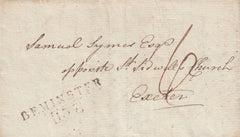 Samuel Symes Esqr
opposite St Sidwells Church
Exeter
6
BEMINSTER